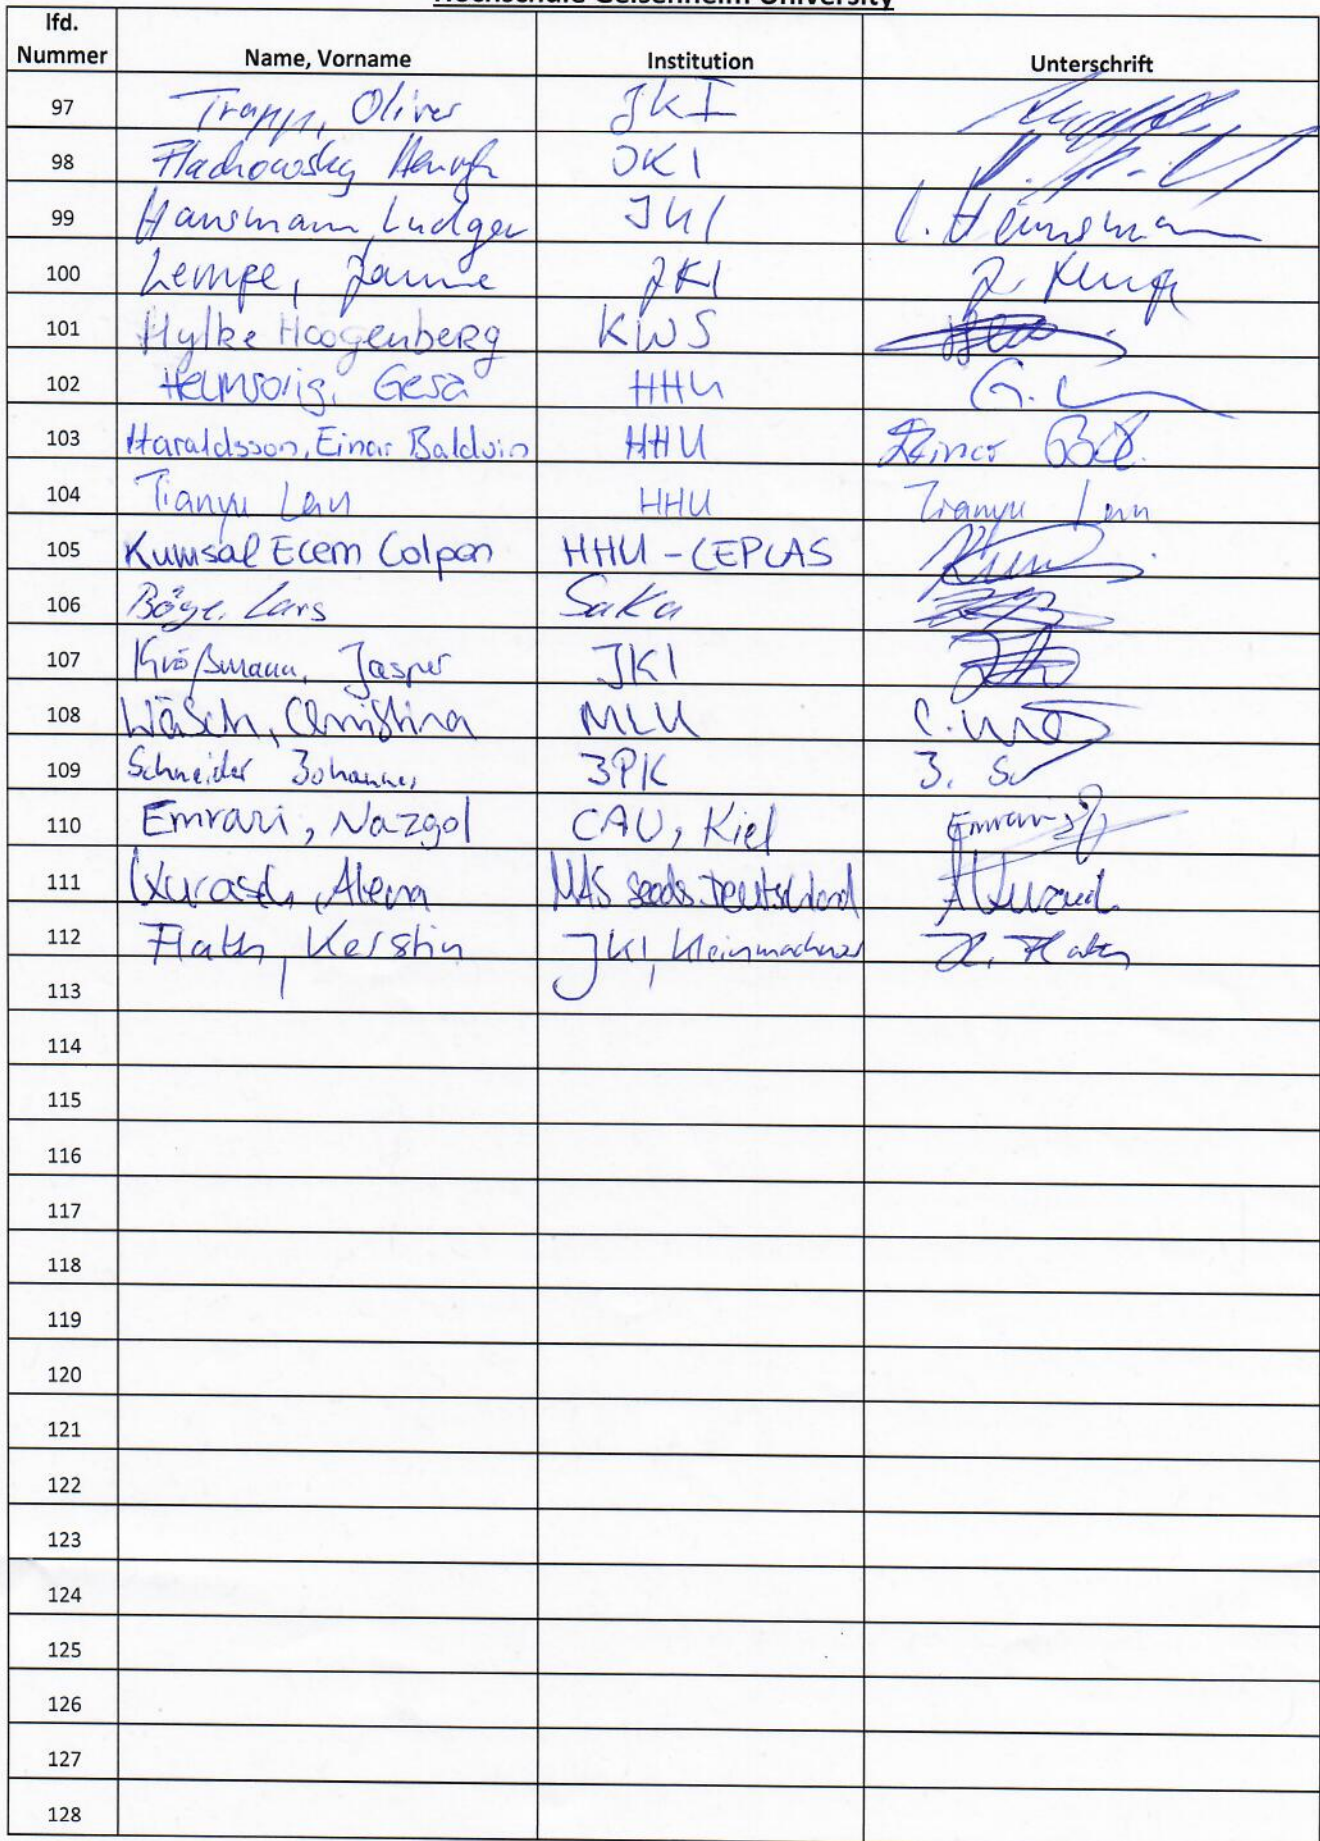 Hochschule Geisenheim University
lfd. Nummer Name, Vorname Institution Unterschrift
97 Trapp, Oliver JKI
98 Flachowsky Henryk JKI
99 Hausmann, Ludger JKI L. Hausmann
100 Lempe, Janne JKI J. Lempe
101 Hylke Hoogenberg KWS
102 Helmsorig, Gesa HHU G.
103 Haraldsson, Einar Baldvin HHU Einar
104 Tianyu Lan HHU Tianyu Lan
105 Kumsal Ecem Colpan HHU - CEPLAS
106 Böge, Lars SaKa
107 Kroßmann, Jasper JKI
108 Wäsch, Christina MLU C.
109 Schneider Johannes IPK J.
110 Emrani, Nazgol CAU, Kiel Emrani
111 Alena MAS seeds Deutschland
112 Flath, Kerstin JKI, Kleinmachnow K. Flath
113
114
115
116
117
118
119
120
121
122
123
124
125
126
127
128